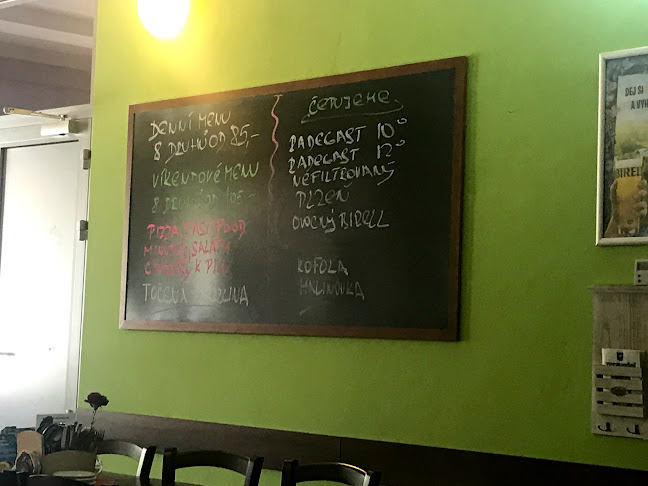 DENNÍ MENU
8 DRUHŮ OD 85,-
VÍKENDOVÉ MENU
8 DRUHŮ OD 105,-
PIZZA, FAST FOOD
MINUTKY, SALÁTY
K PIVU
TOČENÁ ZMRZLINA
ČEPUJEME
RADEGAST 10°
RADEGAST 12°
NEFILTROVANÝ
PLZEŇ
OVOCNÝ BIRELL
KOFOLA
MALINOVKA
DEJ SI
A VYH
BIREL